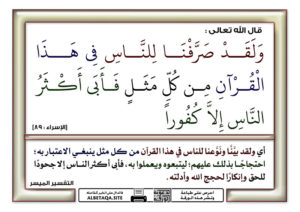 قال الله تعالى :
وَلَقَدْ صَرَّفْنَا لِلنَّاسِ فِي هَذَا
الْقُرْآنِ مِن كُلِّ مَثَلٍ فَأَبَى أَكْثَرُ
النَّاسِ إِلَّا كُفُورًا
[الإسراء : ٨٩]
أي ولقد بيَّنَّا ونوَّعنا للناس في هذا القرآن من كل مثل ينبغي الاعتبار به؛
احتجاجًا بذلك عليهم؛ ليتبعوه ويعملوا به، فأبى أكثر الناس إلا جحودًا
للحق وإنكارًا لحجج الله وأدلته.
التفسير الميسر
ALBETAQA.SITE
احرص على طباعة
ونشر هذه الورقة